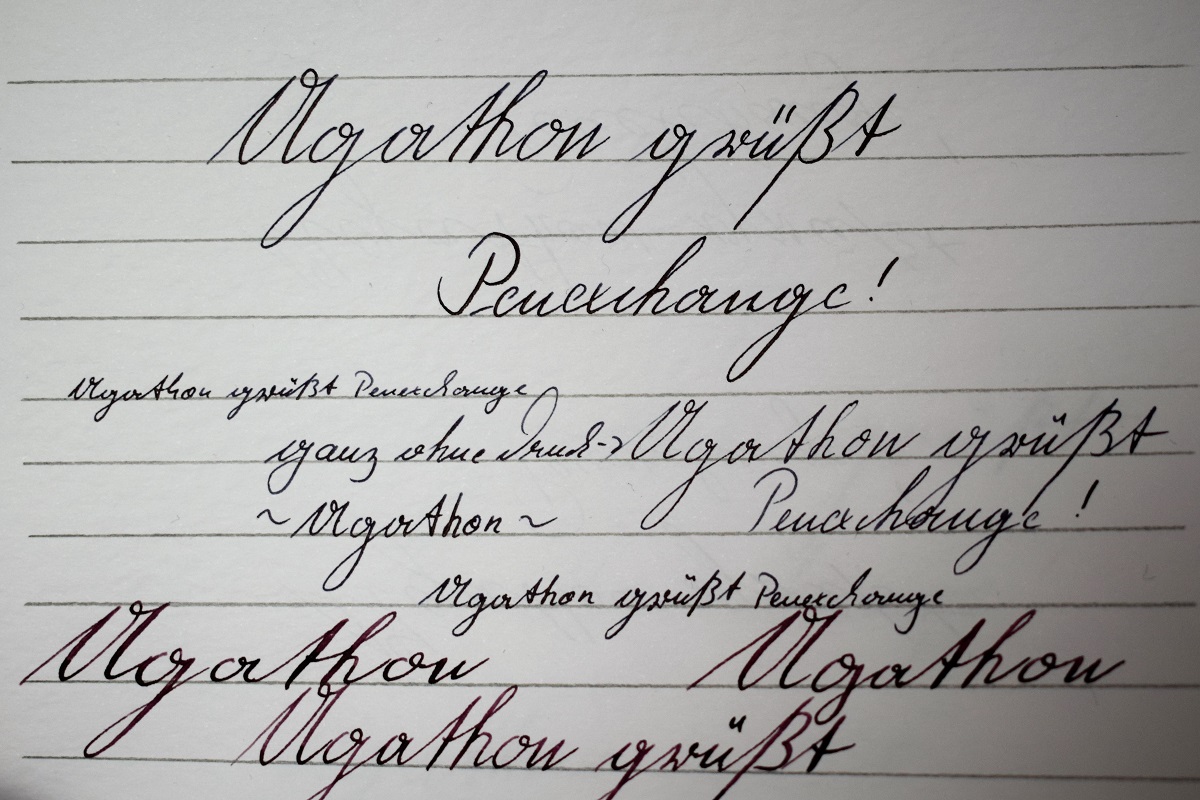 Agathon grüßt
Penexchange!
Agathon grüßt Penexchange
ganz ohne Druck -> Agathon grüßt
~ Agathon ~ Penexchange!
Agathon grüßt Penexchange
Agathon Agathon
Agathon grüßt